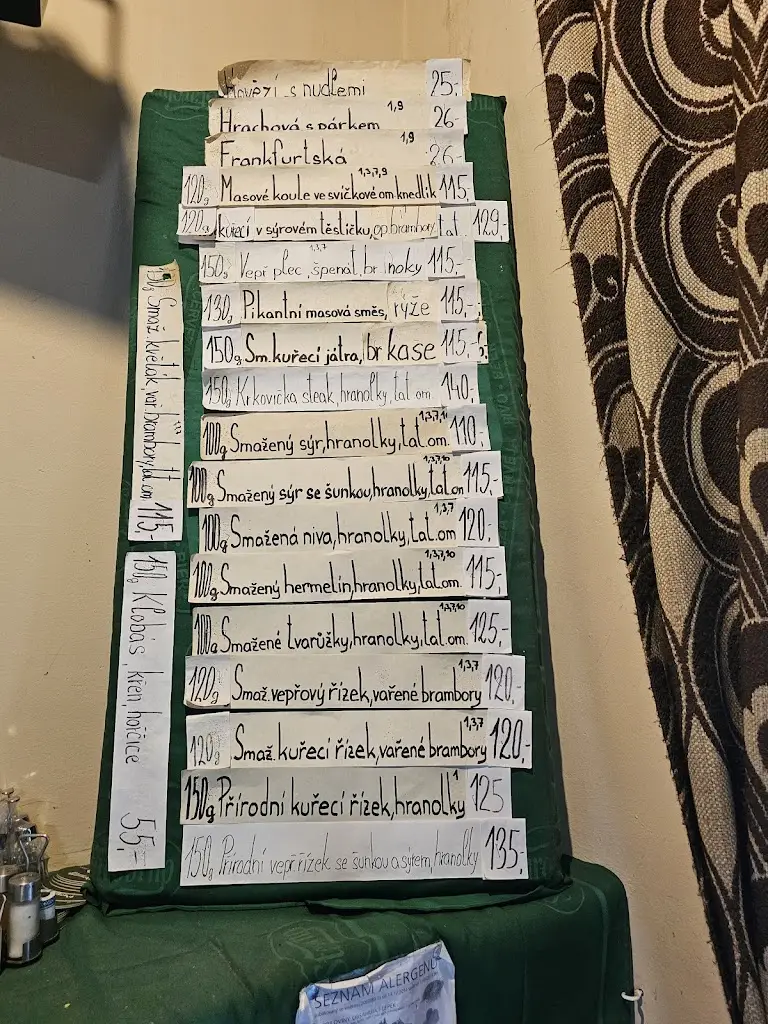 Hovězí s nudlemi 25,-
Hrachová s párkem 1,9 26,-
Frankfurtská 1,9 26,-
120g Masové koule ve svíčkové om knedlík 1,3,7,9 115,-
120g kuřecí v sýrovém těstíčku, op. brambory tat. 129,-
150g Vepř plec, špenát, br. noky 1,3,7 115,-
130g Pikantní masová směs, rýže 115,-
150g Sm. kuřecí játra, br kase 115,-
150g Krkovička steak, hranolky, tat. om. 140,-
100g Smažený sýr, hranolky, tat. om. 110,-
100g Smažený sýr se šunkou, hranolky, tat. om 1,3,7,10 115,-
100g Smažená niva, hranolky, tat. om 1,3,7 120,-
100g Smažený hermelín, hranolky, tat. om. 1,3,7,10 115,-
100g Smažené tvarůžky, hranolky, tat. om. 1,3,7,10 125,-
120g Smaž. vepřový řízek, vařené brambory 1,3,7 120,-
120g Smaž. kuřecí řízek, vařené brambory 1,3,7 120,-
150g Přírodní kuřecí řízek, hranolky 1 125
150g Přírodní vepř. řízek se šunkou a sýrem, hranolky 135,-
150g Smaž. květák, var. brambory, tat. om. 115,-
150g Klobás, křen, hořčice 55,-
SEZNAM ALERGENŮ